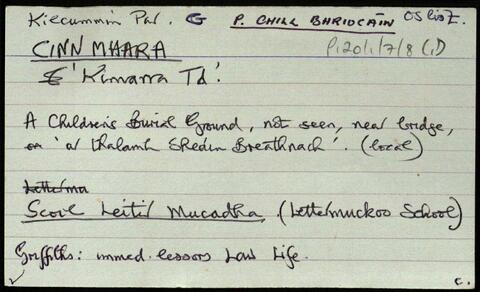 Kilcummin Par. G P. CHILL BHRIOCÁIN OS list.
CINN MHARA P120/1/7/8 (1)
'Kinvarra Td'.
A Children's Burial Ground, not seen, near bridge,
on 'a' thalamh Sheáin Breathnach'. (local)
Letterma
Scoil Leitir Mucadha. (Lettermuckoo School)
Griffiths: immed. lessors Law Life.
C.